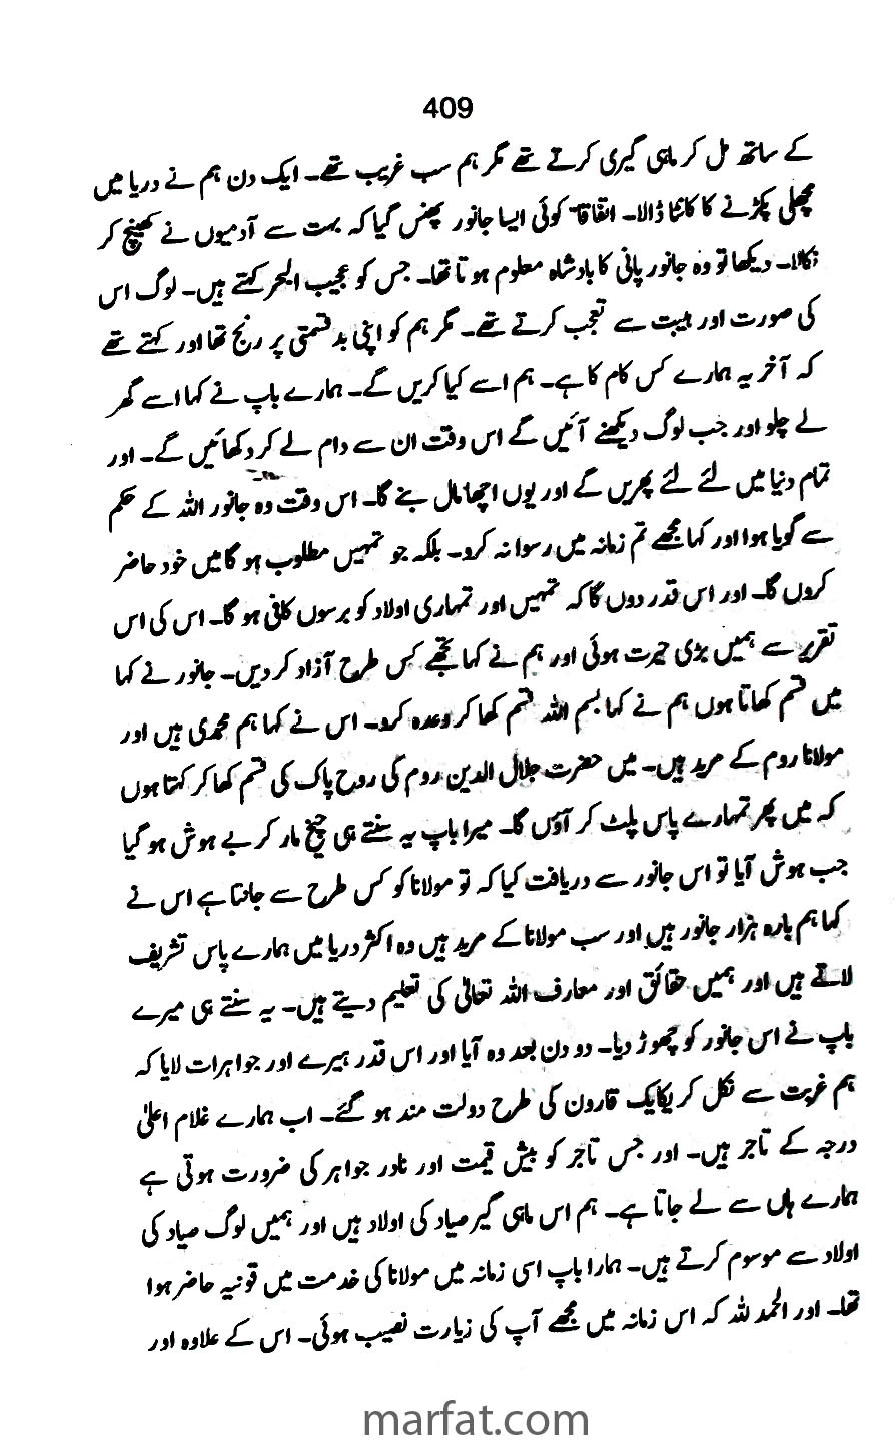 409
کے ساتھ مل کر ماہی گیری کرتے تھے مگر ہم سب غریب تھے۔ ایک دن ہم نے دریا میں
مچھلی پکڑنے کا کانٹا ڈالا۔ اتفاقاً کوئی ایسا جانور پھنس گیا کہ بہت سے آدمیوں نے کھینچ کر
نکالا۔ دیکھا تو وہ جانور پانی کا بادشاہ معلوم ہوتا تھا۔ جس کو عجیب البحر کہتے ہیں۔ لوگ اس
کی صورت اور ہیبت سے تعجب کرتے تھے۔ مگر ہم کو اپنی بد قسمتی پر رنج تھا اور کہتے تھے
کہ آخر یہ ہمارے کس کام کا ہے۔ ہم اسے کیا کریں گے۔ ہمارے باپ نے کہا اسے گھر
لے چلو اور جب لوگ دیکھنے آئیں گے اس وقت ان سے دام لے کر دکھائیں گے۔ اور
تمام دنیا میں لئے لئے پھریں گے اور یوں اچھا مال بنے گا۔ اس وقت وہ جانور اللہ کے حکم
سے گویا ہوا اور کہا مجھے تم زمانہ میں رسوا نہ کرو۔ بلکہ جو تمہیں مطلوب ہو گا میں خود حاضر
کروں گا۔ اور اس قدر دوں گا کہ تمہیں اور تمہاری اولاد کو برسوں کافی ہو گا۔ اس کی اس
تقریر سے ہمیں بڑی حیرت ہوئی اور ہم نے کہا تجھے کس طرح آزاد کر دیں۔ جانور نے کہا
میں قسم کھاتا ہوں ہم نے کہا بسم اللہ قسم کھا کر وعدہ کرو۔ اس نے کہا ہم محمدی ہیں اور
مولانا روم کے مرید ہیں۔ میں حضرت جلال الدین روم کی روح پاک کی قسم کھا کر کہتا ہوں
کہ میں پھر تمہارے پاس پلٹ کر آؤں گا۔ میرا باپ یہ سنتے ہی چیخ مار کر بے ہوش ہو گیا
جب ہوش آیا تو اس جانور سے دریافت کیا کہ تو مولانا کو کس طرح سے جانتا ہے اس نے
کہا ہم بارہ ہزار جانور ہیں اور سب مولانا کے مرید ہیں وہ اکثر دریا میں ہمارے پاس تشریف
لاتے ہیں اور ہمیں حقائق اور معارف اللہ تعالیٰ کی تعلیم دیتے ہیں۔ یہ سنتے ہی میرے
باپ نے اس جانور کو چھوڑ دیا۔ دو دن بعد وہ آیا اور اس قدر ہیرے اور جواہرات لایا کہ
ہم غربت سے نکل کر یکایک قارون کی طرح دولت مند ہو گئے۔ اب ہمارے غلام اعلیٰ
درجہ کے تاجر ہیں۔ اور جس تاجر کو بیش قیمت اور نادر جواہر کی ضرورت ہوتی ہے
ہمارے ہاں سے لے جاتا ہے۔ ہم اس ماہی گیر صیاد کی اولاد ہیں اور ہمیں لوگ صیاد کی
اولاد سے موسوم کرتے ہیں۔ ہمارا باپ اسی زمانہ میں مولانا کی خدمت میں قونیہ حاضر ہوا
تھا۔ اور الحمد للہ کہ اس زمانہ میں مجھے آپ کی زیارت نصیب ہوئی۔ اس کے علاوہ اور
marfat.com